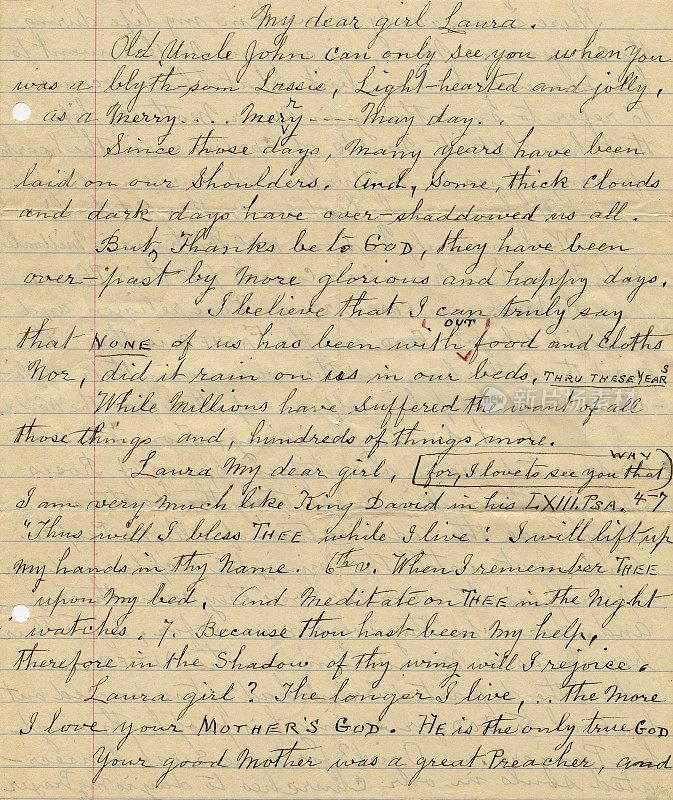 My dear girl Laura.
Old Uncle John can only see you when you
was a blyth-som Lassie, Light-hearted and jolly,
as a Merry.... Merry ---- May day..
Since those days, Many years have been
laid on our Shoulders. And, some, thick Clouds
and dark days have over-shaddowed us all.
But, Thanks be to GOD, they have been
over-past by More glorious and happy days.
I believe that I can truly say
that NONE of us has been with OUT food and Cloths
Nor, did it rain on us in our beds, THRU THESE YEARS
While Millions have suffered the want of all
those things and, hundreds of things more.
Laura My dear girl, (for, I love to see you that WAY)
I am very much like King David in his LXIII. PSA. 4-7
"Thus will I bless THEE while I live: I will lift up
my hands in thy Name. 6th v. When I remember THEE
upon My bed, and Meditate on THEE in the Night
watches. 7. Because thou hast been My help,
therefore in the Shadow of thy wing will I rejoice.
Laura girl? The longer I live,.. the More
I love your MOTHER'S GOD. HE is the only true GOD
Your good Mother was a great Preacher, and